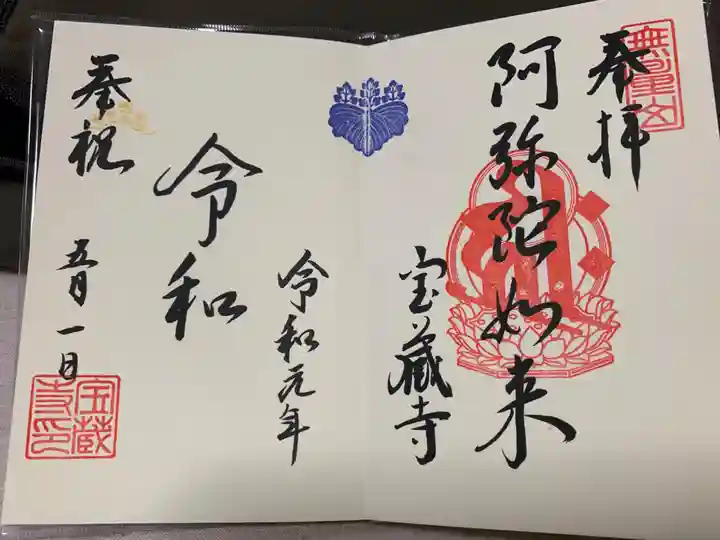 奉拝
阿弥陀如来
宝蔵寺
無量山
令和元年
令和
奉祝
五月一日
宝蔵寺印